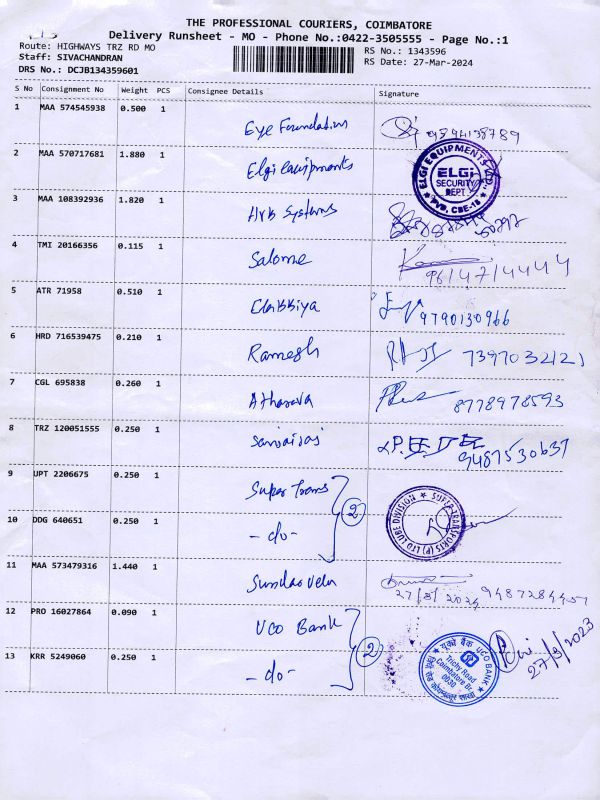 THE PROFESSIONAL COURIERS, COIMBATORE
Delivery Runsheet - MO - Phone No.:0422-3505555 - Page No.:1
Route: HIGHWAYS TRZ RD MO
RS No.: 1343596
Staff: SIVACHANDRAN
RS Date: 27-Mar-2024
DRS No.: DCJB134359601
S No Consignment No Weight PCS Consignee Details Signature
1 MAA 574545938 0.500 1 Eye Foundation
2 MAA 570717681 1.880 1 Elgi Equipments
ELGI EQUIPMENTS LTD.
ELGI
SECURITY
DEPT
PVB, CBE-15
3 MAA 108392936 1.820 1 Systems
4 TMI 20166356 0.115 1 Salome
96/47/4444
5 ATR 71958 0.510 1 9790130966
6 HRD 716539475 0.210 1 Ramesh 7397032121
7 CGL 695838 0.260 1 Atharava 8778978593
8 TRZ 120051555 0.250 1 9487530637
9 UPT 2206675 0.250 1 Super Trans
2
SUPER TRANSPORTS (P) LTD LUBE DIVISION
10 DDG 640651 0.250 1 -do-
11 MAA 573479316 1.440 1 Sundaravelu
27/3/2024
12 PRO 16027864 0.090 1 UCO Bank
2
यूको बैंक UCO BANK
Trichy Road
Coimbatore Br.
0030
27/3/2023
13 KRR 5249060 0.250 1 -do-